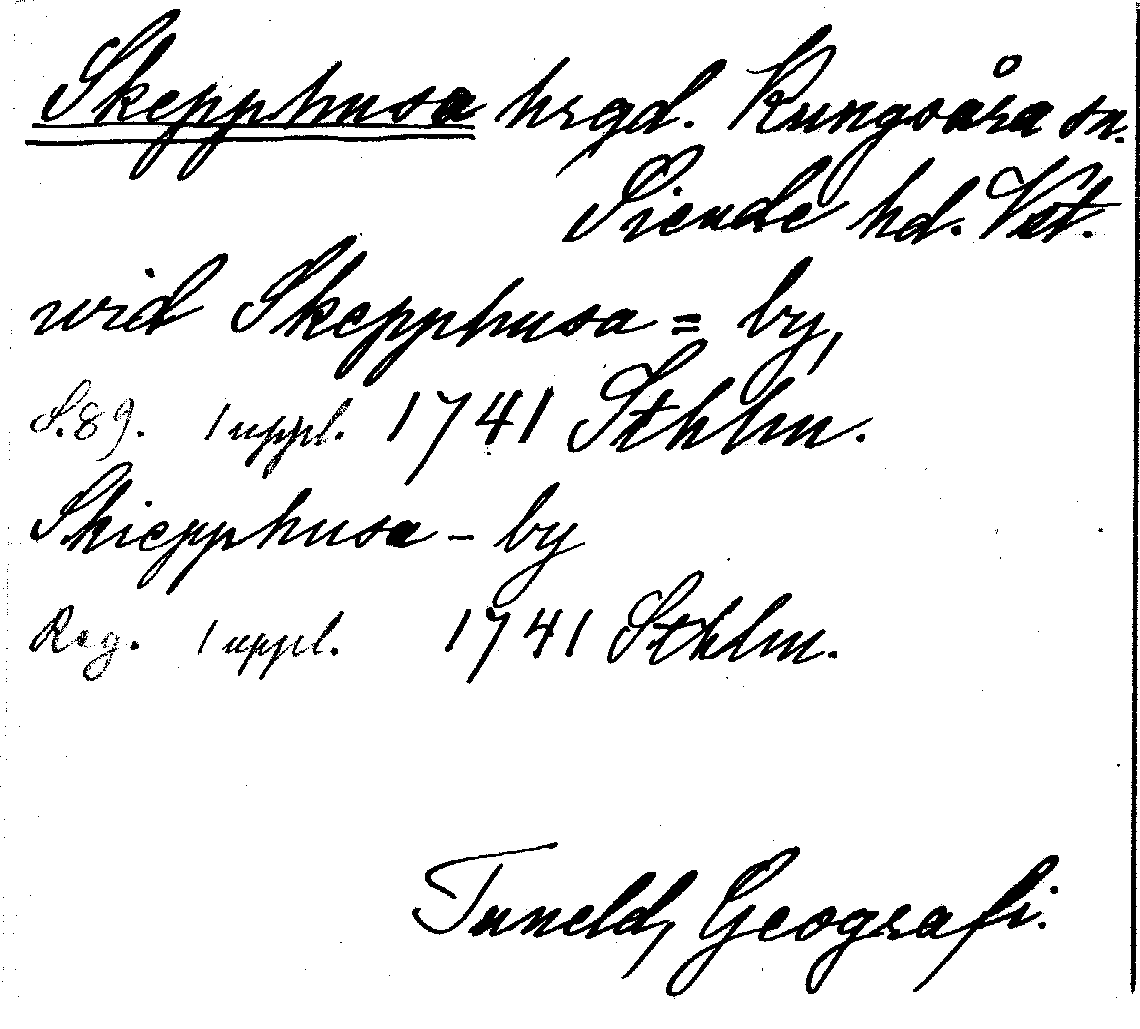 Skepphusa hrgd. Kungsåra sn.
Siende hd. Vstm.
wid Skepphusa = by,
S. 89. 1 uppl. 1741 Sthlm.
Skiepphusa - by
Reg. 1 uppl. 1741 Sthlm.
Tuneld, Geografi.